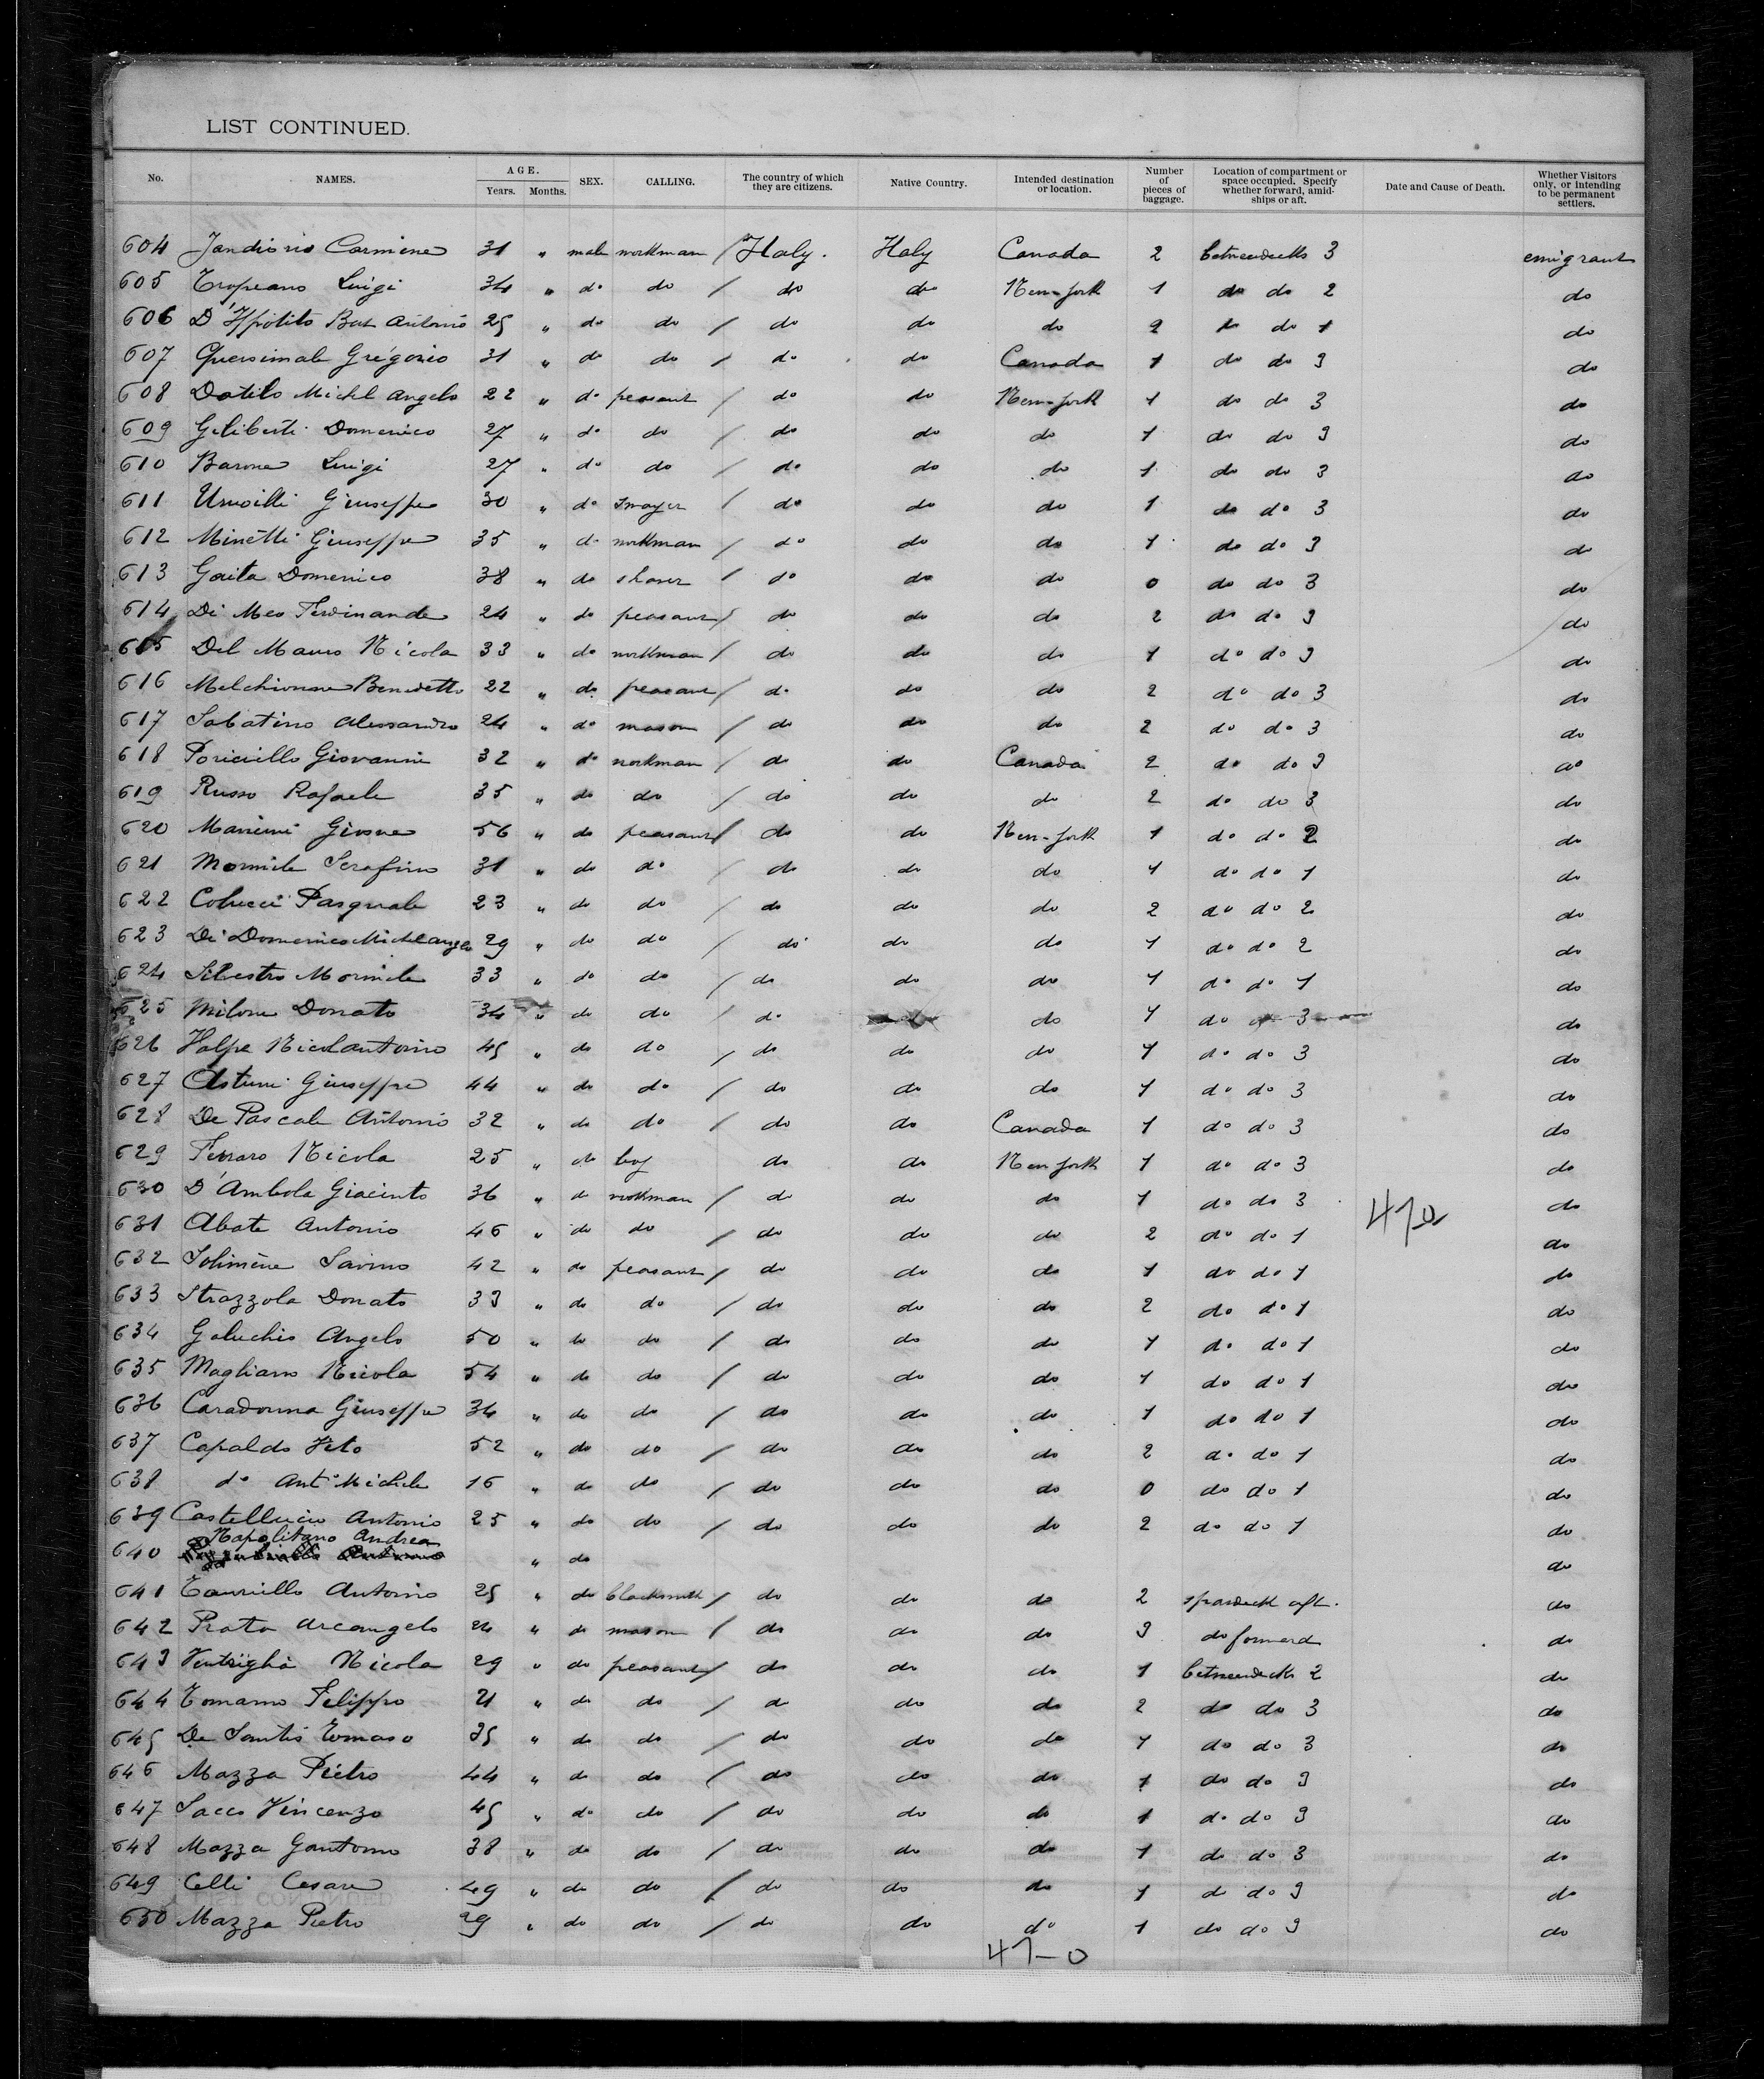 LIST CONTINUED.
No. NAMES. AGE. Years. Months. SEX. CALLING. The country of which they are citizens. Native Country. Intended destination or location. Number of pieces of baggage. Location of compartment or space occupied. Specify whether forward, amidships or aft. Date and Cause of Death. Whether Visitors only, or intending to be permanent settlers.
604 Carmine 31 " male workman / Italy. Italy Canada 2 betweendecks 3 emigrant
605 Tropeano Luigi 34 " do do / do do New-York 1 do do 2 do
606 D'Ippolito Antonio 25 " do do / do do do 2 do do 1 do
607 Quaresimale Gregorio 31 " do do / do do Canada 1 do do 3 do
608 Datilo Michel Angelo 22 " do peasant / do do New-York 1 do do 3 do
609 Geliberti Domenico 27 " do do / do do do 1 do do 3 do
610 Barone Luigi 27 " do do / do do do 1 do do 3 do
611 Giuseppe 30 " do / do do do 1 do do 3 do
612 Minetti Giuseppe 35 " do workman / do do do 1 do do 3 do
613 Gaita Domenico 38 " do / do do do 0 do do 3 do
614 Di Meo Ferdinando 24 " do peasant / do do do 2 do do 3 do
615 Del Mauro Nicola 33 " do workman / do do do 1 do do 3 do
616 Melchionne Benedetto 22 " do peasant / do do do 2 do do 3 do
617 Sabatino Alessandro 24 " do mason / do do do 2 do do 3 do
618 Giovanni 32 " do workman / do do Canada 2 do do 3 do
619 Russo Rafaele 35 " do do / do do do 2 do do 3 do
620 Giosue 56 " do peasant / do do New-York 1 do do 2 do
621 Mormile Serafino 31 " do do / do do do 1 do do 1 do
622 Colucci Pasquale 23 " do do / do do do 2 do do 2 do
623 Di Domenico Michelangelo 29 " do do / do do do 1 do do 2 do
624 Silvestro Mormile 33 " do do / do do do 1 do do 1 do
625 Milone Donato 34 " do do / do do do 1 do do 3 do
626 Nicolantonio 45 " do do / do do do 1 do do 3 do
627 Astuni Giuseppe 44 " do do / do do do 1 do do 3 do
628 De Pascale Antonio 32 " do do / do do Canada 1 do do 3 do
629 Ferraro Nicola 25 " do boy do do New York 1 do do 3 do
630 D'Ambola Giacinto 36 " do workman / do do do 1 do do 3 470 do
631 Abate Antonio 46 " do do / do do do 2 do do 1 do
632 Solimene Savino 42 " do peasant / do do do 1 do do 1 do
633 Strazzola Donato 33 " do do / do do do 2 do do 1 do
634 Galuchio Angelo 50 " do do / do do do 1 do do 1 do
635 Magliano Nicola 54 " do do / do do do 1 do do 1 do
636 Caradonna Giuseppe 34 " do do / do do do 1 do do 1 do
637 Capaldo Vito 52 " do do / do do do 2 do do 1 do
638 do Anto Michele 16 " do do / do do do 0 do do 1 do
639 Castelluccio Antonio 25 " do do / do do do 2 do do 1 do
640 Napolitano Andrea " do do
641 Tauriello Antonio 25 " do blacksmith / do do do 2 spardeck aft. do
642 Prata Arcangelo 24 " do mason / do do do 3 do forward do
643 Ventriglia Nicola 29 " do peasant / do do do 1 betweendecks 2 do
644 Tomasso Filippo 21 " do do / do do do 2 do do 3 do
645 De Santis Tomaso 35 " do do / do do do 1 do do 3 do
646 Mazza Pietro 44 " do do / do do do 1 do do 3 do
647 Sacco Vincenzo 45 " do do / do do do 1 do do 3 do
648 Mazza Gantonio 38 " do do / do do do 1 do do 3 do
649 Celli Cesare 49 " do do / do do do 1 do do 3 do
650 Mazza Pietro 29 " do do / do do do 1 do do 3 do
47-0